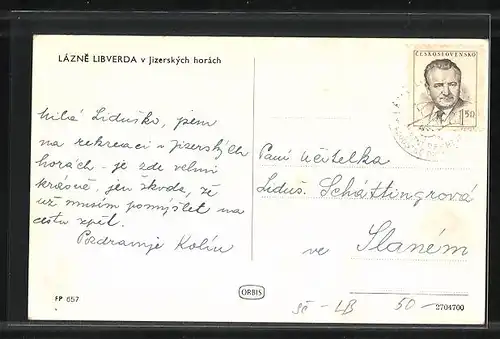 LÁZNĚ LIBVERDA v Jizerských horách
ČESKOSLOVENSKO
1.50
Milá Liduško, jsem
na rekreaci v Jizerských
horách - je zde velmi
krásně, jen škoda, že
už musím pomýšlet na
cestu zpět.
Pozdravuje Kolín
Paní učitelka
Liduš. Schättingrová
ve
Slaném
FP 657
ORBIS
sč - LB
50 -
2704700